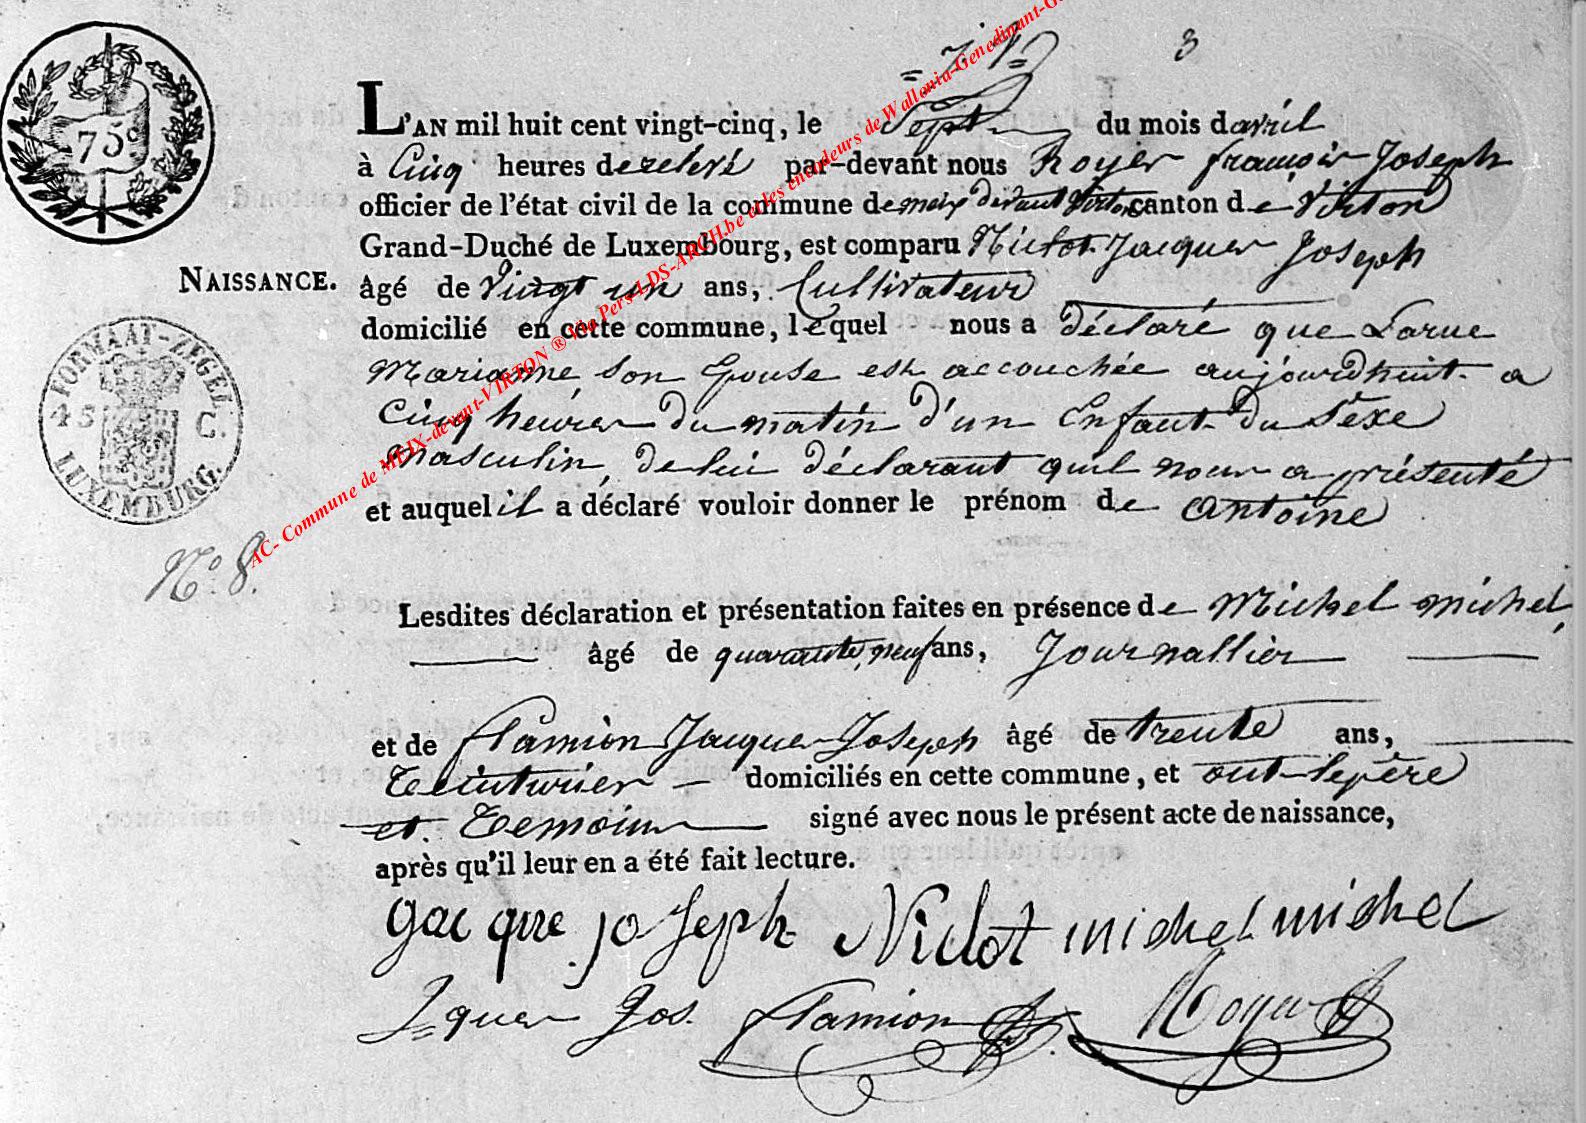 3
75c
L'AN mil huit cent vingt-cinq, le Sept du mois d'avril
à Cinq heures de relevé par-devant nous Royer françois Joseph
officier de l'état civil de la commune de meix devant Virton canton de Virton
Grand-Duché de Luxembourg, est comparu Niclot Jacques Joseph
NAISSANCE.
âgé de Vingt un ans, Cultivateur
domicilié en cette commune, lequel nous a déclaré que Larue
Marianne, son Epouse est accouchée aujourdhuit a
Cinq heures du matin d'un Enfant du Sèxe
Masculin, de lui déclarant quil nous a présenté
et auquel il a déclaré vouloir donner le prénom de Antoine
FORMAAT-ZEGEL
45 C.
LUXEMBURG.
N.o 8.
AC- Commune de MEIX-devant-VIRTON ® via Pers-LDS-ARCH.be et les encodeurs de Wallonia-Genedinant-G
Lesdites déclaration et présentation faites en présence de Michel michel,
âgé de quarante, neuf ans, Journallier
et de flamion Jacques Joseph âgé de trente ans,
Teinturier domiciliés en cette commune, et ont le père
et Temoins signé avec nous le présent acte de naissance,
après qu'il leur en a été fait lecture.
gacque joseph Niclot michel michel
Jques Jos. flamion Royer